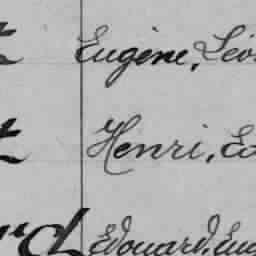 Eugène, Léo
Henri, Ed
Edouard, Eug